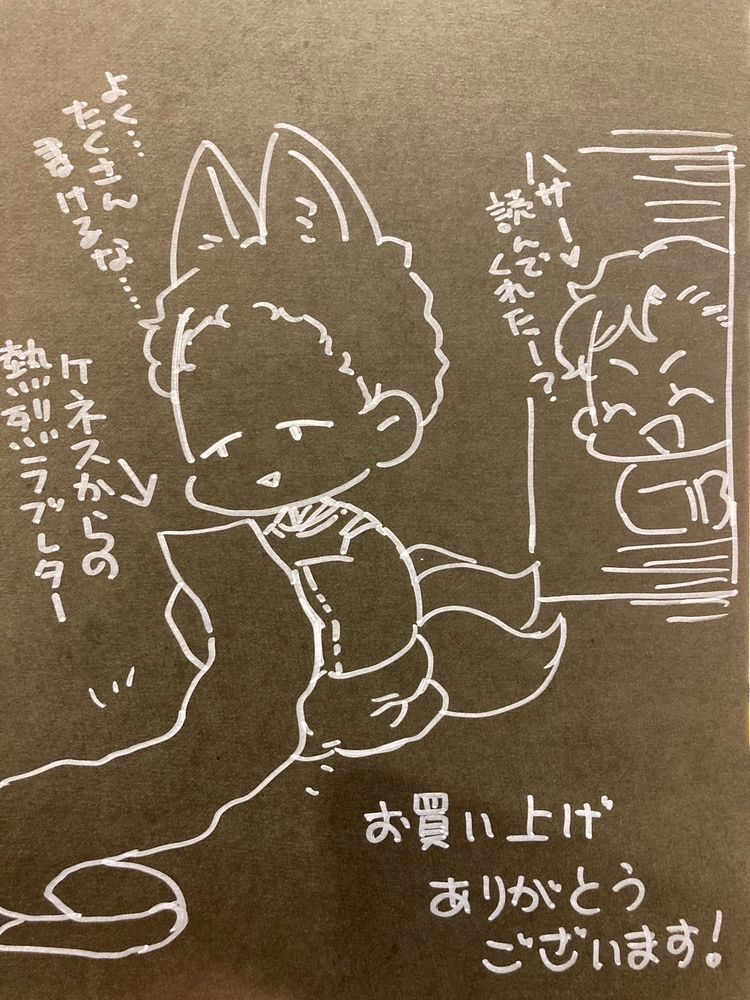 ハサー♥
読んで
くれたー?
よく…
たくさん
書けるな…
ケネスからの
熱烈ラブレター
お買い上げ
ありがとう
ございます!